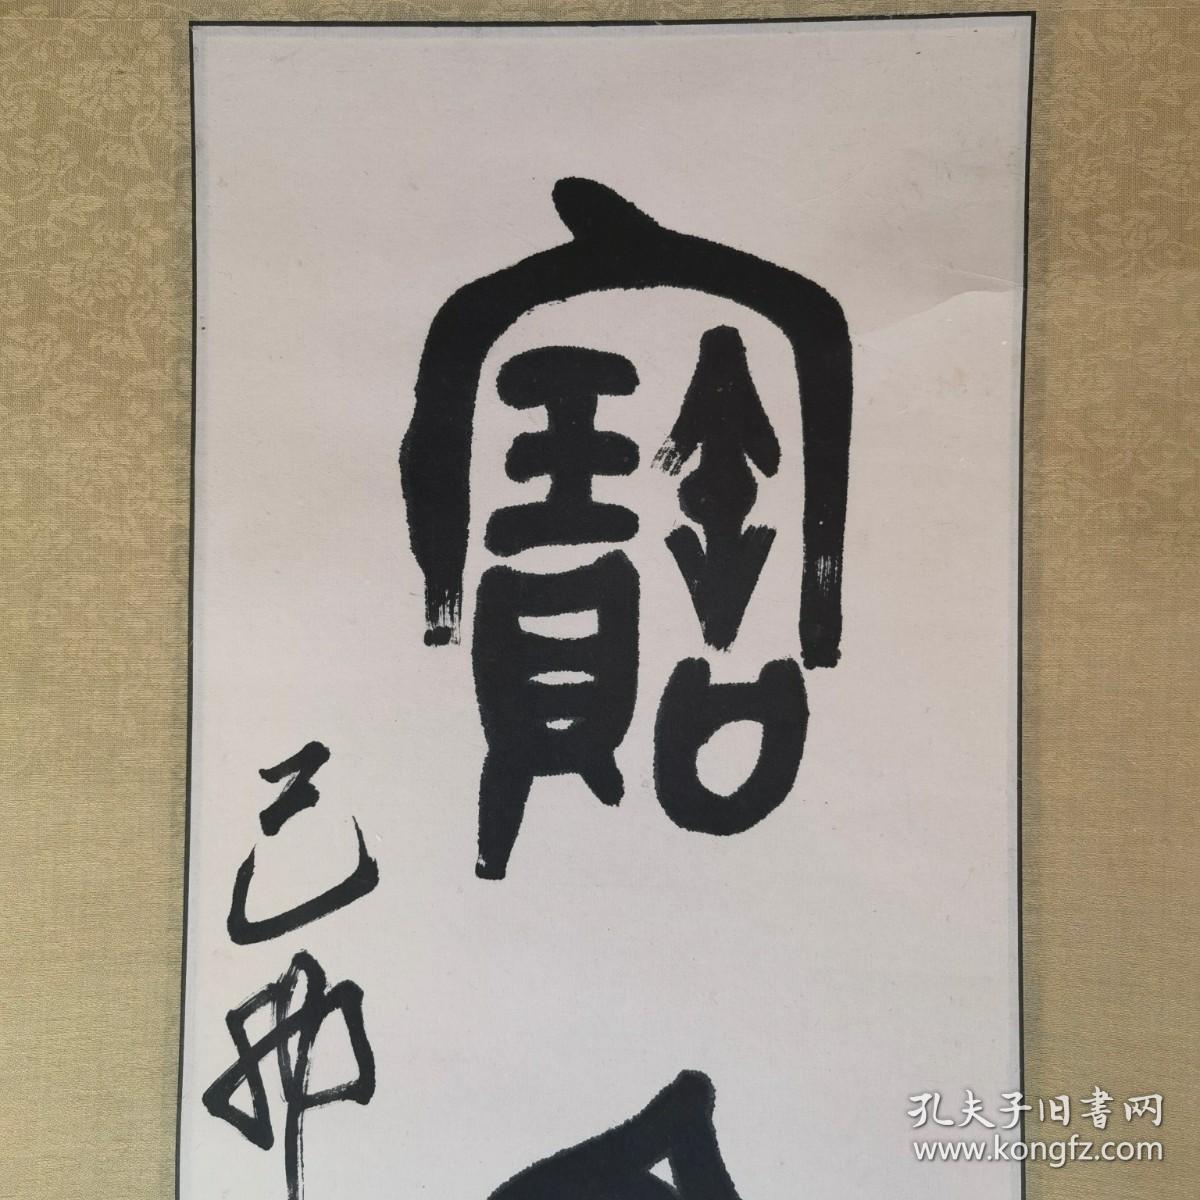 寶
己卯
孔夫子旧書网
www.kongfz.com